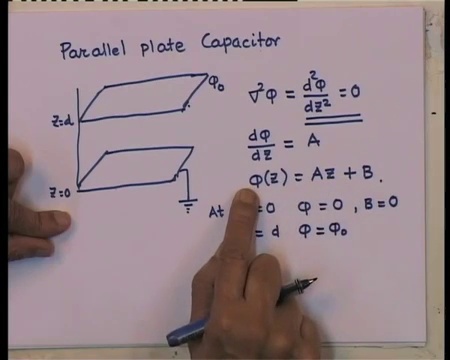 Parallel plate Capacitor
φ₀
z=d
z=0
∇²φ = d²φ/dz² = 0
dφ/dz = A
φ(z) = Az + B.
At = 0 φ = 0 , B = 0
= d φ = φ₀